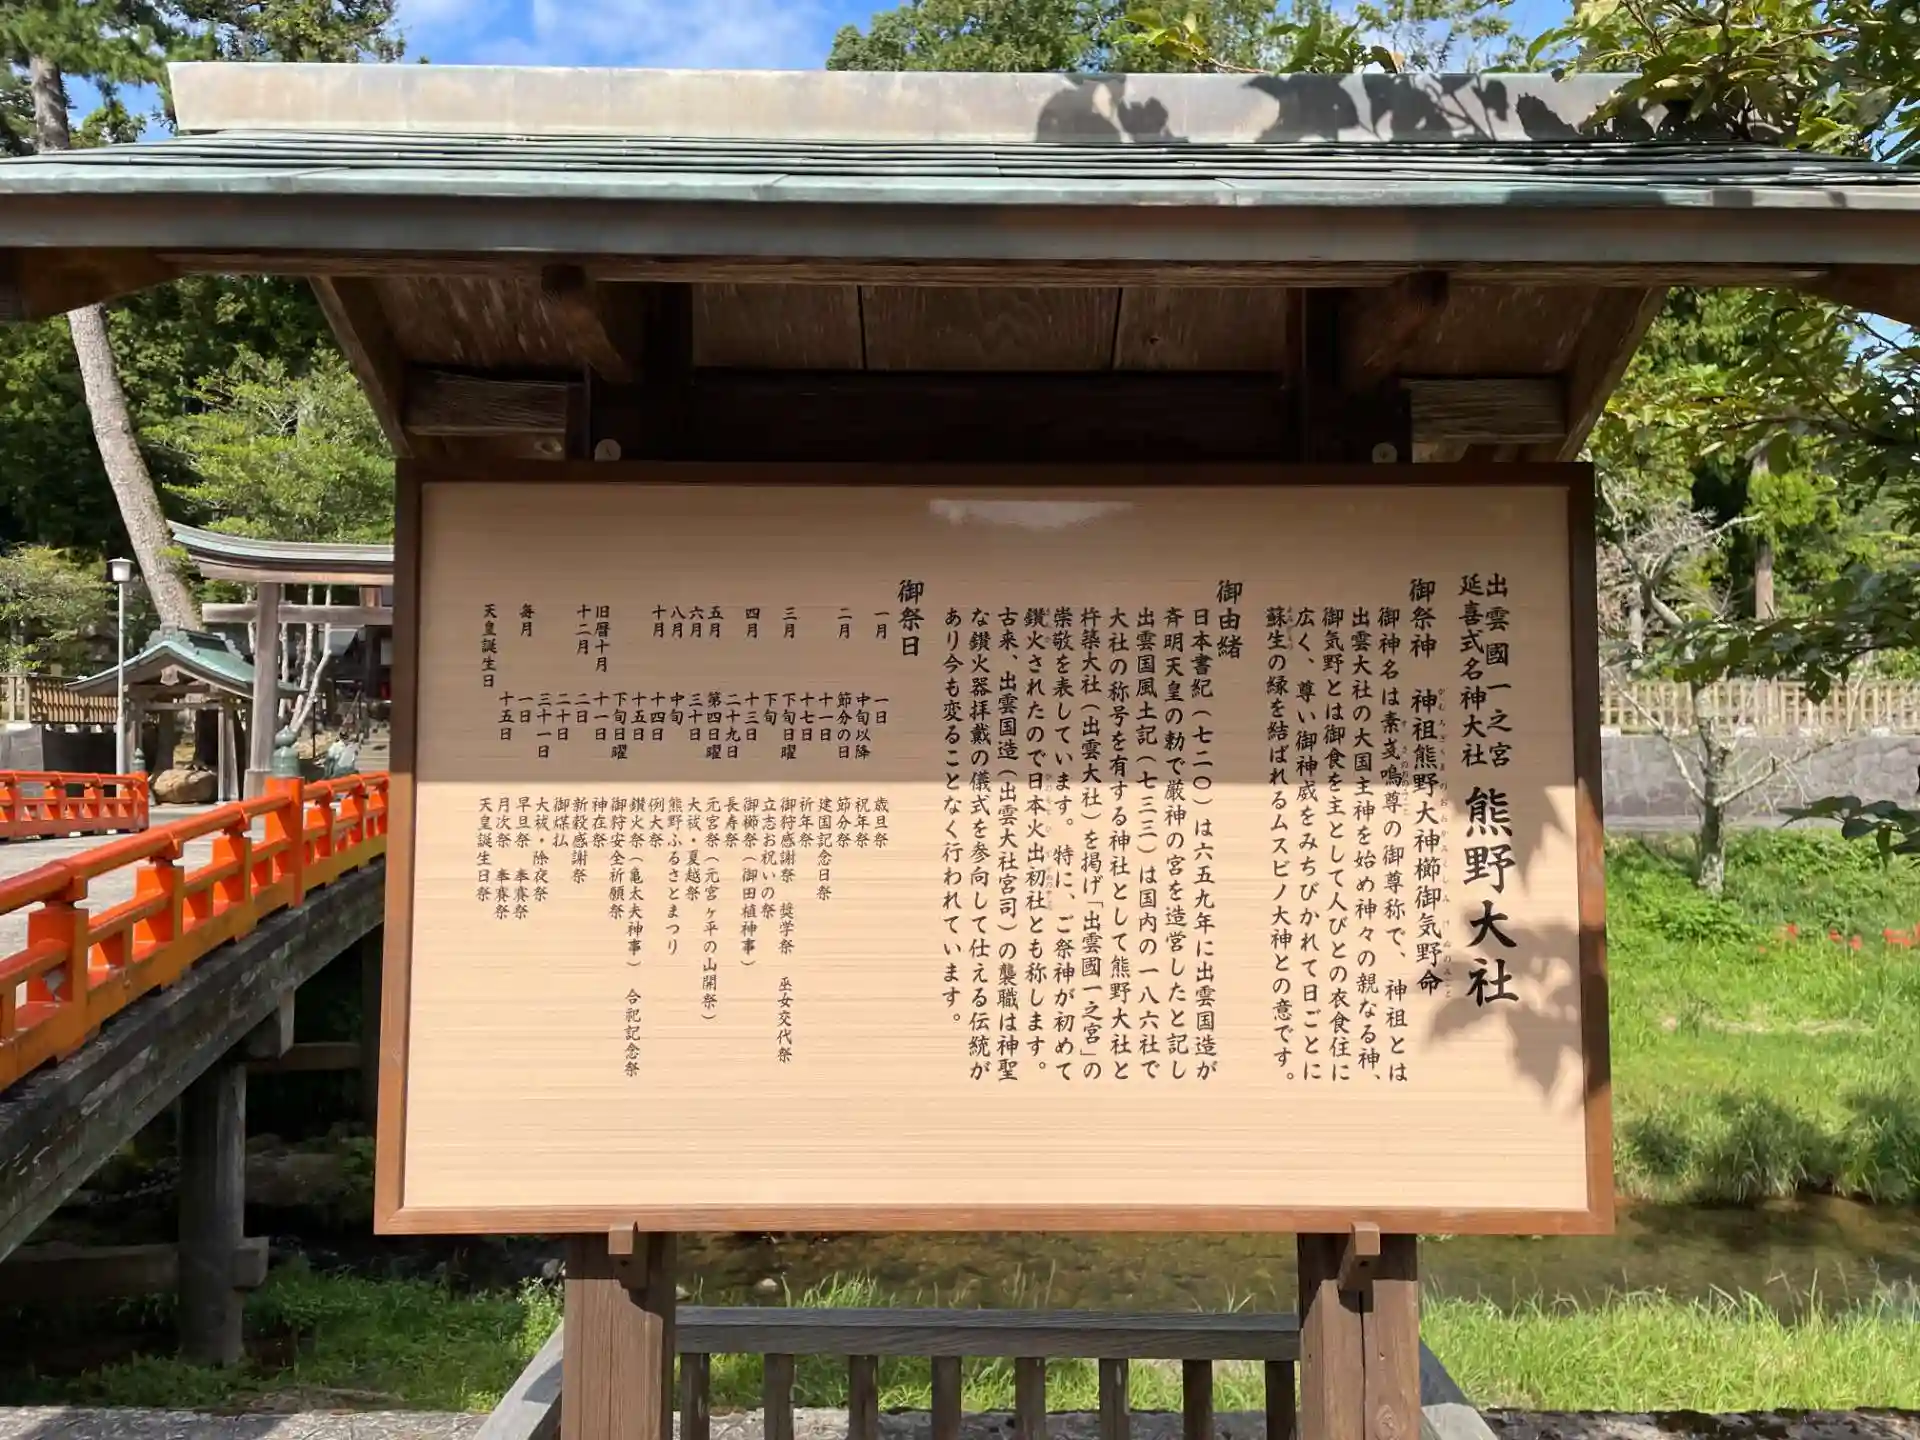 出雲國一之宮
延喜式名神大社
熊野大社
御祭神　神祖熊野大神櫛御気野命
御神名は素戔嗚尊の御尊称で、神祖とは
出雲大社の大国主神を始め神々の親なる神、
御気野とは御食を主として人びとの衣食住に
広く、尊い御神威をみちびかれて日ごとに
蘇生の縁を結ばれるムスビノ大神との意です。
御由緒
日本書紀（七二〇）は六五九年に出雲国造が
斉明天皇の勅で厳神の宮を造営したと記し
出雲国風土記（七三三）は国内の一八六社で
大社の称号を有する神社として熊野大社と
杵築大社（出雲大社）を掲げ「出雲國一之宮」の
崇敬を表しています。特に、ご祭神が初めて
鑚火されたので日本火出初社とも称します。
古来、出雲国造（出雲大社宮司）の襲職は神聖
な鑚火器拝戴の儀式を参向して仕える伝統が
あり今も変ることなく行われています。
御祭日
一月　一日　歳旦祭
中旬以降　祝年祭
二月　節分の日　節分祭
十一日　建国記念日祭
十七日　祈年祭
三月　下旬日曜　御狩感謝祭　奨学祭　巫女交代祭
下旬　立志お祝いの祭
四月　十三日　御櫛祭（御田植神事）
二十九日　長寿祭
五月　第四日曜　元宮祭（元宮ヶ平の山開祭）
六月　三十日　大祓・夏越祭
八月　中旬　熊野ふるさとまつり
十月　十四日　例大祭
十五日　鑚火祭（亀太夫神事）　合祀記念祭
下旬日曜　御狩安全祈願祭
旧暦十月　十一日　神在祭
十二月　二日　新穀感謝祭
二十日　御煤払
三十一日　大祓・除夜祭
毎月　一日　早旦祭　奉賽祭
十五日　月次祭　奉賽祭
天皇誕生日　天皇誕生日祭